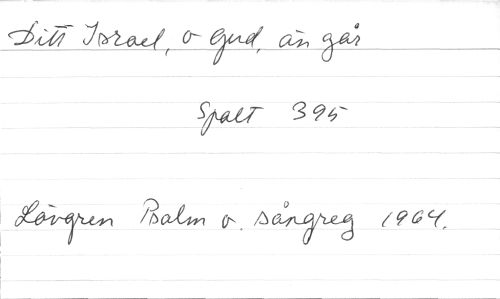 Ditt Israel, o Gud, än går
Spalt 395
Lövgren Psalm o. sångreg 1964.